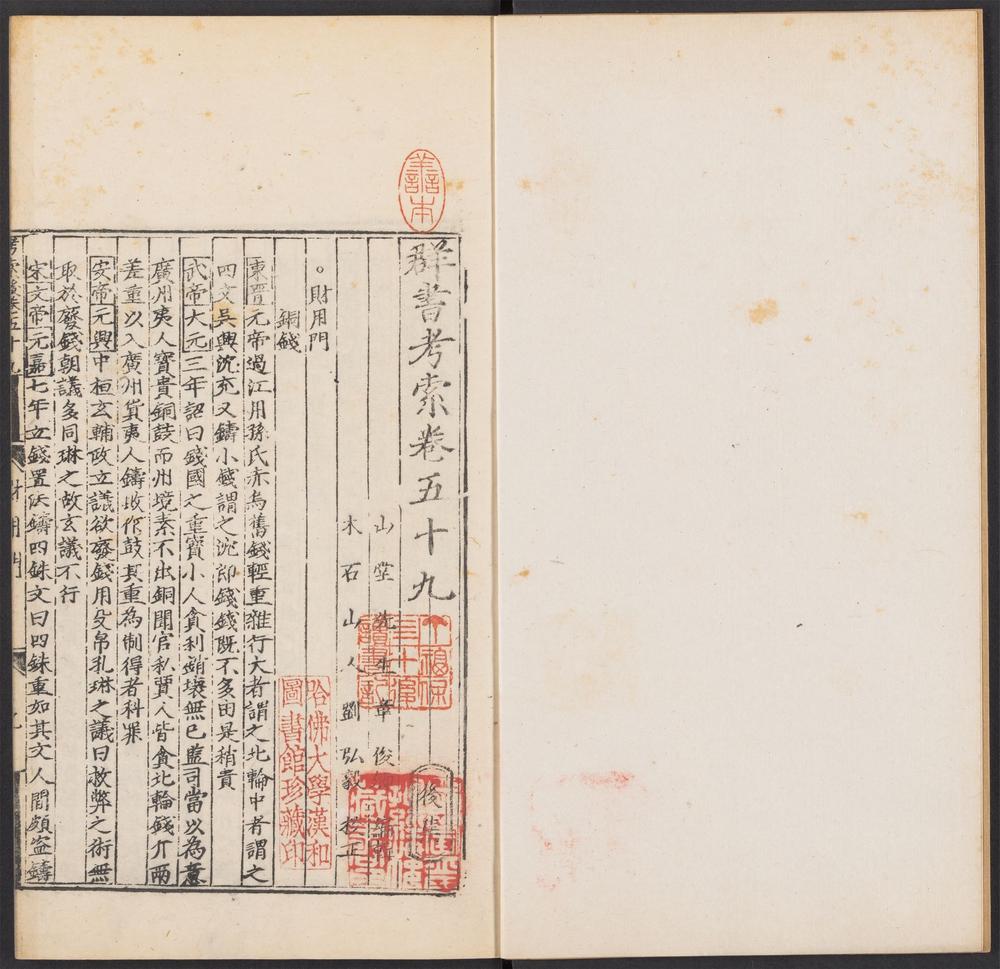 善本
群書考索卷五十九
後集
山堂先生章俊卿編輯
木石山人劉弘毅校正
哈佛大學漢和
圖書館珍藏印
。財用門
銅錢
東晋元帝過江用孫氏赤烏舊錢輕重雜行大者謂之比輪中者謂之
四文吳興沈充又鑄小錢謂之沈郎錢錢既不多由是稍貴
武帝大元三年詔曰錢國之重寳小人貪利銷壞無已監司當以為意
廣州夷人寳貴銅鼓而州境素不出銅聞官私賈人皆貪比輪錢斤兩
差重以入廣州貨夷人鑄敗作鼓其重為制得者科罪
安帝元興中桓玄輔政立議欲廢錢用糓帛孔琳之議曰救弊之術無
取於廢錢朝議多同琳之故玄議不行
宋文帝元嘉七年立錢置法鑄四銖文曰四銖重如其文人間頗盜鑄
財用門